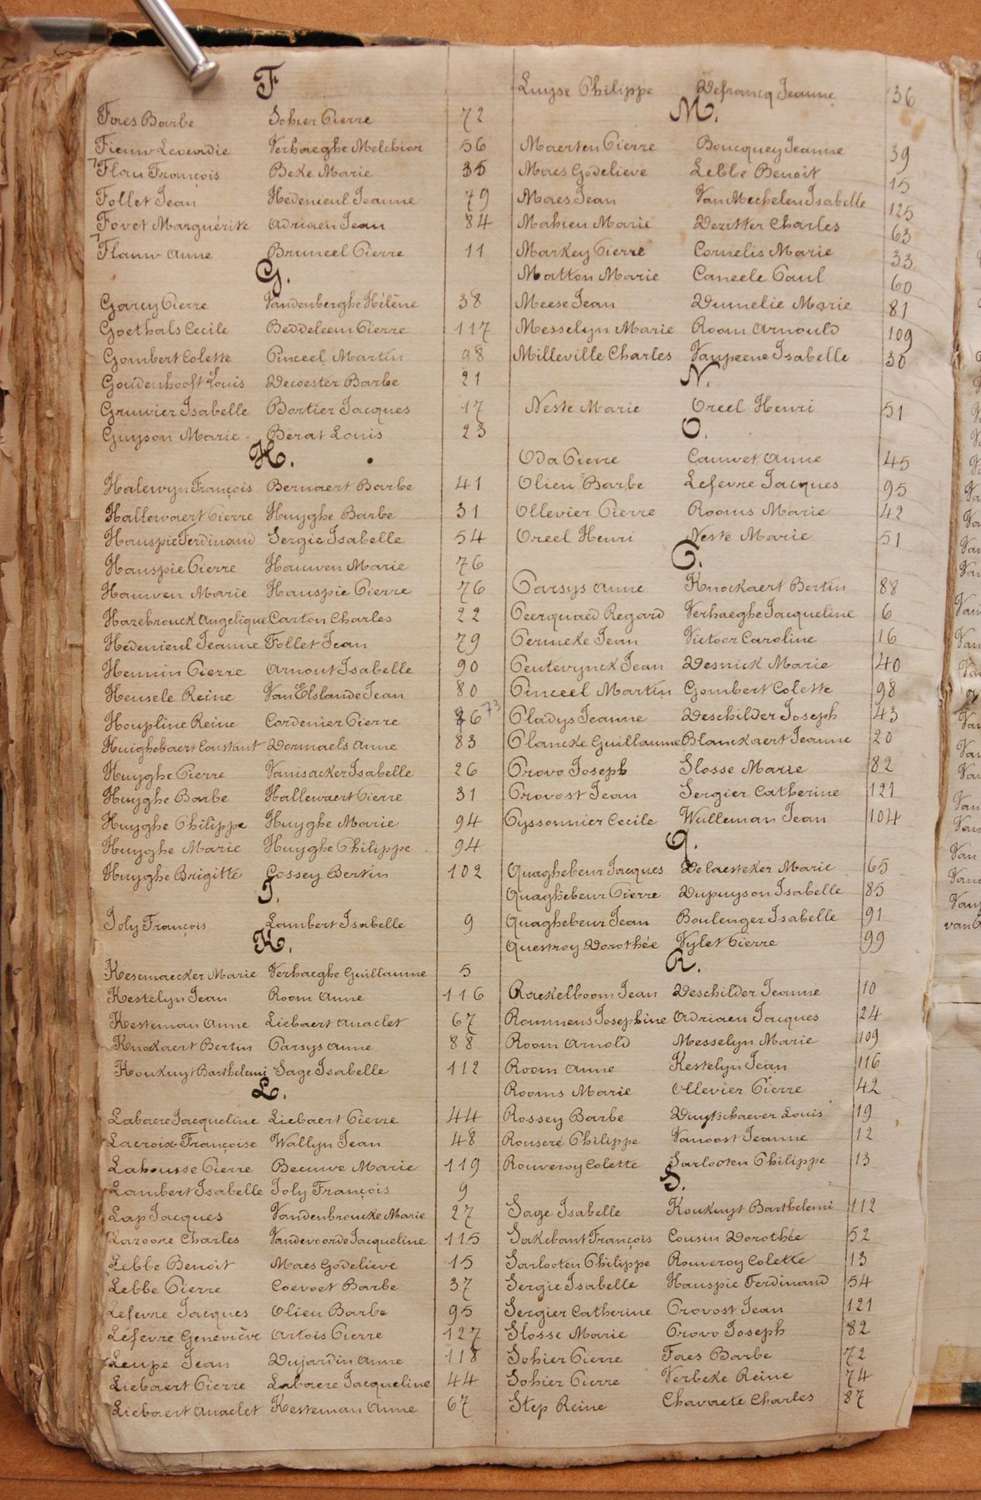 F
Faes Barbe Sohier Pierre 72
Fieuw Leocadie Verhaeghe Melchior 56
Flau François Beke Marie 35
Follet Jean Hedenieul Jeanne 79
Fovet Marguérite Adriaen Jean 84
Flauw Anne Bruneel Pierre 11
G.
Garcy Pierre Vandenberghe Hélène 38
Goethals Cecile Beddeleem Pierre 117
Gombert Colette Pinceel Martin 98
Goudenhooft Louis Decoester Barbe 21
Gruwier Isabelle Bortier Jacques 17
Guyson Marie Berat Louis 23
H.
Halewyn François Bernaert Barbe 41
Hallewaert Pierre Huyghe Barbe 31
Hauspie Ferdinand Sergie Isabelle 54
Hauspie Pierre Hauwen Marie 76
Hauwen Marie Hauspie Pierre 76
Hazebrouck Angelique Carton Charles 22
Hedenieul Jeanne Follet Jean 79
Hennin Pierre Arnout Isabelle 90
Heusele Reine Van Elslande Jean 80
Houpline Reine Cordenier Pierre 73
Huighebaert Constant Dormaels Anne 83
Huyghe Pierre Vanisacker Isabelle 26
Huyghe Barbe Hallewaert Pierre 31
Huyghe Philippe Huyghe Marie 94
Huyghe Marie Huyghe Philippe 94
Huyghe Brigitte Cossey Bertin 102
J.
Joly François Lambert Isabelle 9
K.
Kesemaecker Marie Verhaeghe Guillaume 5
Kestelyn Jean Room Anne 116
Kesteman Anne Liebaert Anaclet 67
Knockaert Bertin Parsys Anne 88
Koukuyt Barthelemi Sage Isabelle 112
L.
Labaere Jacqueline Liebaert Pierre 44
Lacroix Françoise Wallyn Jean 48
Lahousse Pierre Becuwe Marie 119
Lambert Isabelle Joly François 9
Lap Jacques Vandenbroucke Marie 27
Lazoore Charles Vandevoorde Jacqueline 115
Lebbe Benoit Maes Godelieve 15
Lebbe Pierre Coevoet Barbe 37
Lefevre Jacques Olieu Barbe 95
Léfevre Geneviève Artois Pierre 127
Leupe Jean Dujardin Anne 118
Liebaert Pierre Labaere Jacqueline 44
Liebaert Anaclet Kesteman Anne 67
Luyse Philippe Defrancq Jeanne 36
M.
Maerten Pierre Boucquey Jeanne 39
Maes Godelieve Lebbe Benoit 15
Maes Jean Van Mechelen Isabelle 125
Mahieu Marie Deritter Charles 63
Markey Pierre Cornelis Marie 33
Matton Marie Caneele Paul 60
Meese Jean Dumelie Marie 81
Messelyn Marie Room Arnould 109
Milleville Charles Vanpeene Isabelle 30
N.
Neste Marie Oreel Henri 51
O.
Oda Pierre Cauwet Anne 45
Olieu Barbe Lefevre Jacques 95
Ollevier Pierre Rooms Marie 42
Oreel Henri Neste Marie 51
P.
Parsys Anne Knockaert Bertin 88
Peerquaed Regard Verhaeghe Jacqueline 6
Perneke Jean Victoor Caroline 16
Peuterynck Jean Desnick Marie 40
Pinceel Martin Gombert Colette 98
Pladys Jeanne Deschilder Joseph 43
Plancke Guillaume Blanckaert Jeanne 20
Provo Joseph Slosse Marie 82
Provost Jean Sergier Catherine 121
Pyssonnier Cecile Wulleman Jean 104
Q.
Quaghebeur Jacques Delaesteker Marie 65
Quaghebeur Pierre Dupuyson Isabelle 85
Quaghebeur Jean Boulenger Isabelle 91
Questroy Dorothée Vylet Pierre 99
R.
Raekelboom Jean Deschilder Jeanne 10
Raummens Josephine Adriaen Jacques 24
Room Arnold Messelyn Marie 109
Room Anne Kestelyn Jean 116
Rooms Marie Ollevier Pierre 42
Rossey Barbe Duytschaever Louis 19
Rouseré Philippe Vanoost Jeanne 12
Rouveroy Colette Sarlooten Philippe 13
S.
Sage Isabelle Koukuyt Barthelemi 112
Sakebant François Cousin Dorothée 52
Sarlooten Philippe Rouveroy Colette 13
Sergie Isabelle Hauspie Ferdinand 54
Sergier Catherine Provost Jean 121
Slosse Marie Provo Joseph 82
Sohier Pierre Faes Barbe 72
Sohier Pierre Verbeke Reine 74
Step Reine Chavaete Charles 87